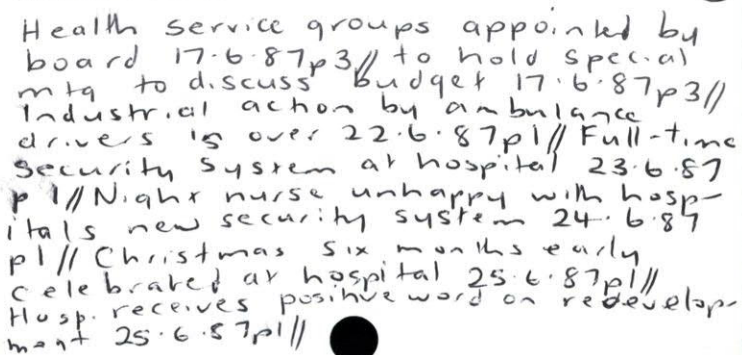 Health service groups appointed by
board 17.6.87p3// to hold special
mtg to discuss budget 17.6.87p3//
Industrial action by ambulance
drivers is over 22.6.87p1// Full-time
Security System at hospital 23.6.87
p1// Night nurse unhappy with hosp-
itals new security system 24.6.87
p1// Christmas six months early
celebrated at hospital 25.6.87p1//
Hosp. receives positive word on redevelop-
ment 25.6.87p1//